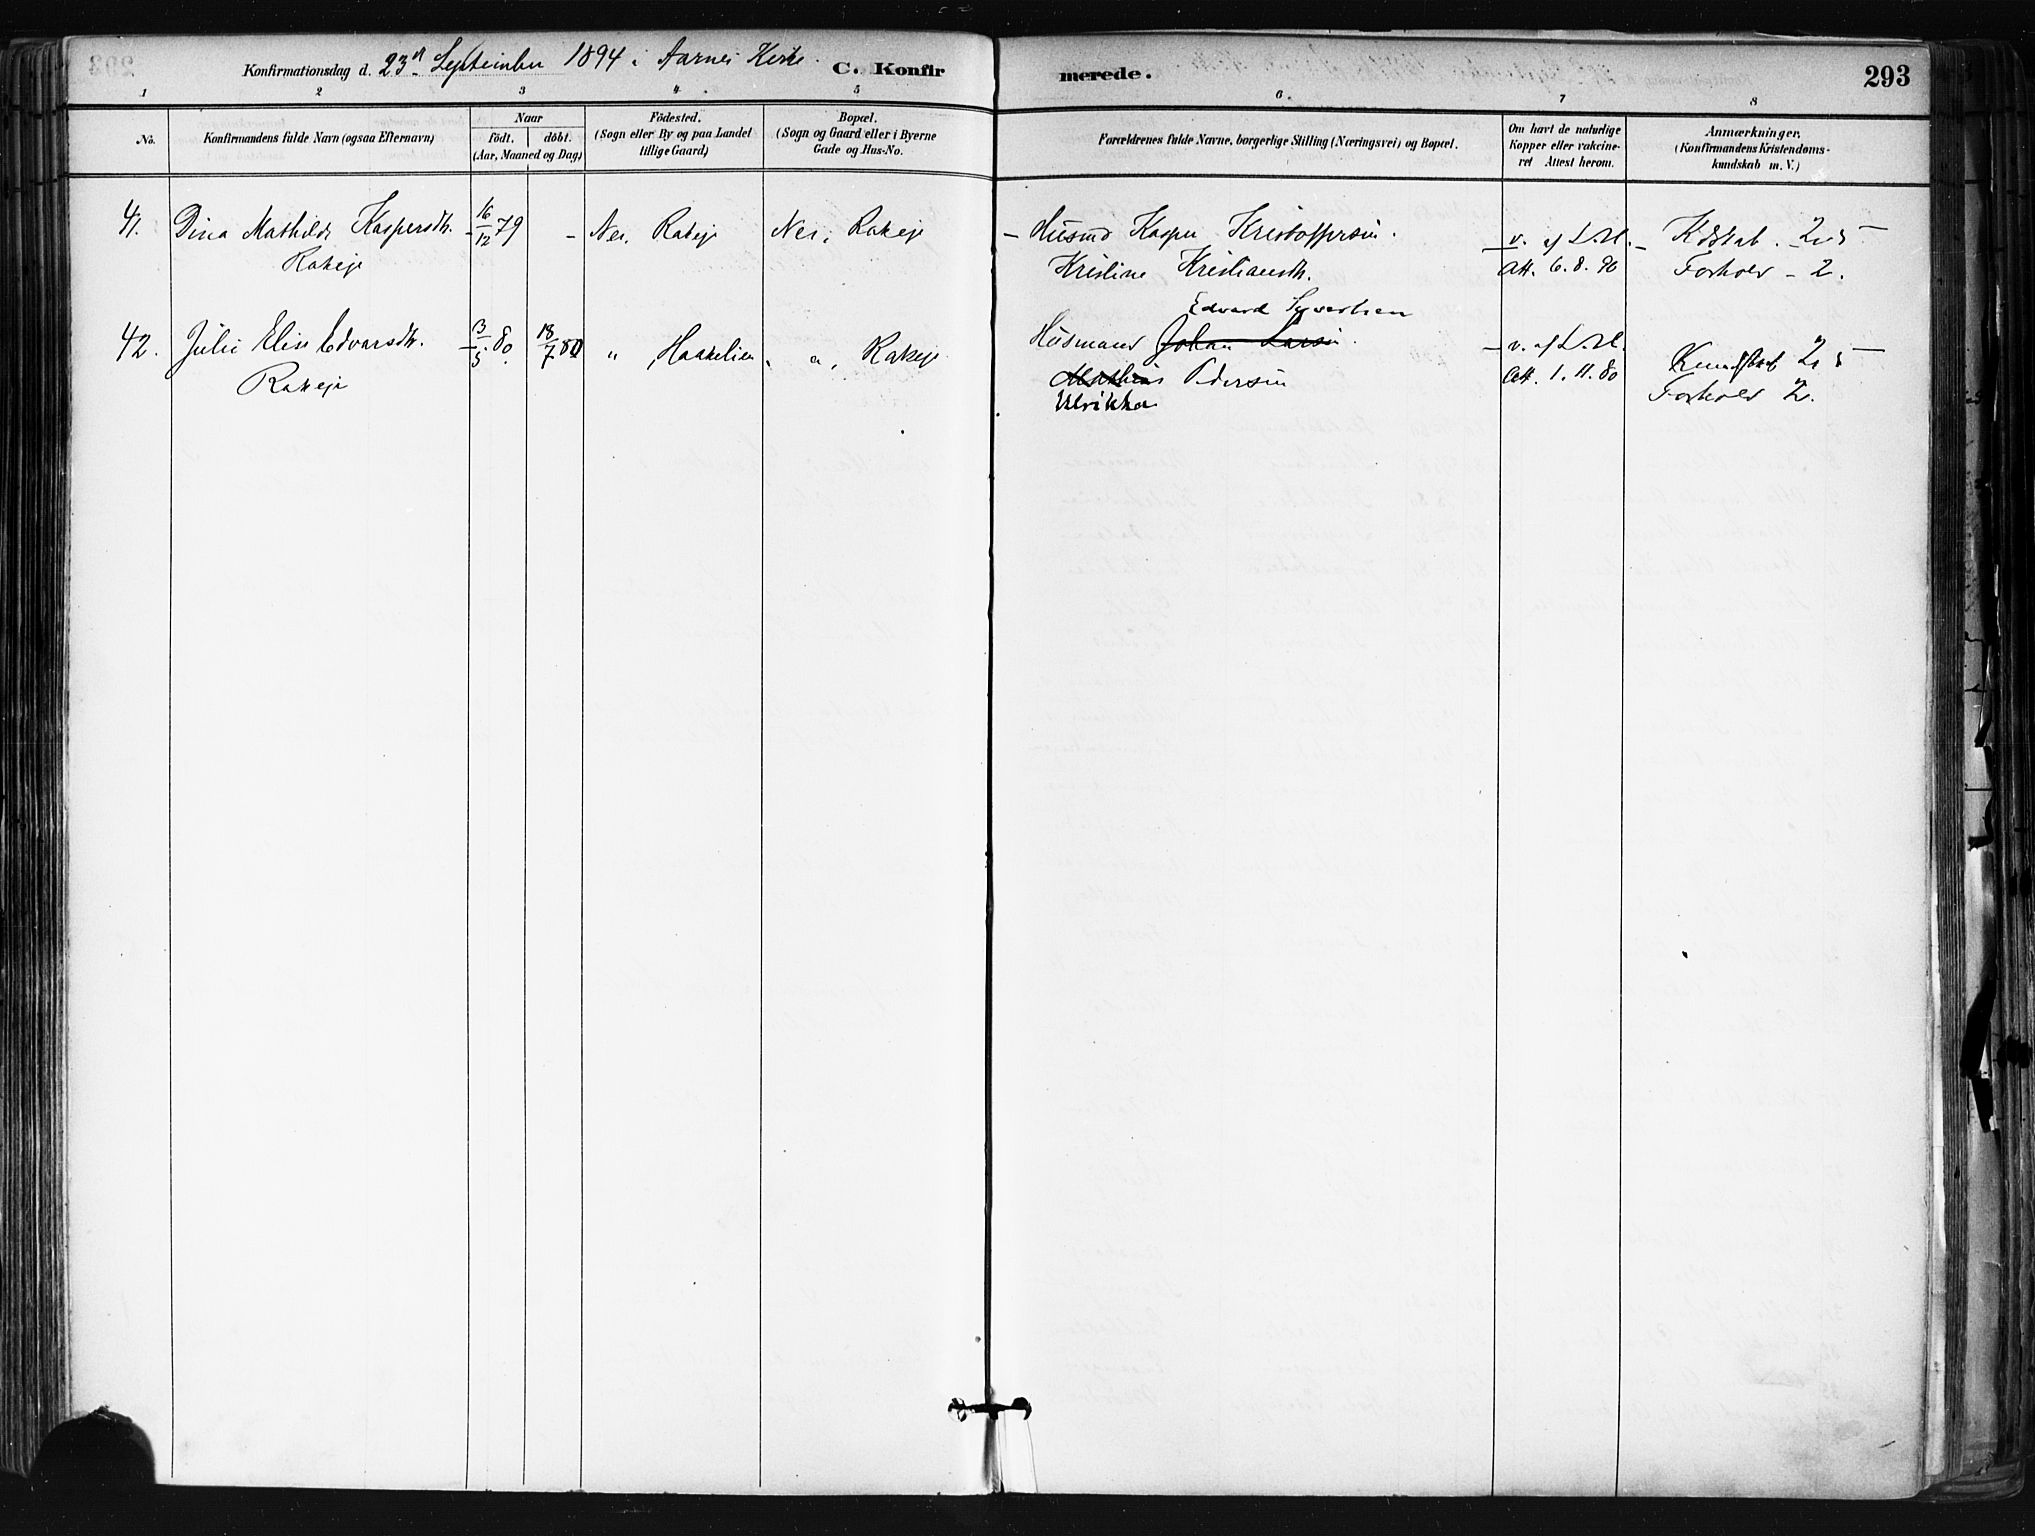 Konfirmationsdag d. 23de September 1894 i Aarnes Kirke. C. Konfirmerede. 293
1 2 3 4. 5 6. 7 8
No. Konfirmandens fulde Navn (ogsaa Efternavn)
Naar
Födt. döbt.
(Aar, Maaned og Dag)
Födested.
(Sogn eller By og paa Landet
tillige Gaard)
Bopæl.
(Sogn og Gaard eller i Byerne
Gade og Hus-No.
Forældrenes fulde Navne, borgerlige Stilling (Næringsvei) og Bopæl.
Om havt de naturlige
Kopper eller vakcine-
ret Attest herom.
Anmærkninger.
(Konfirmandens Kristendoms-
kundskab m. V.)
41. Dina Mathilde Kaspersdtr. 16/12 79 - Nes, Rakeje Nes, Rakeje - Husmd Kasper Kristoffersen. - v. af L. H. - Kdskab. 2
Rakeje Kristine Kristiansdtr. Att. 6. 8. 90 Forhold - 2.
Edvard Syvertsen
42. Julie Elise Edvarsdtr. 3/5 80. 18/7 80 " Haakelien " " , Rakeje Husmand Johan Larsen. - v. af L. H. Kundskab 2
Rakeje Mathea Pedersen Att. 1. 11. 80 Forhold 2.
Ulrikka